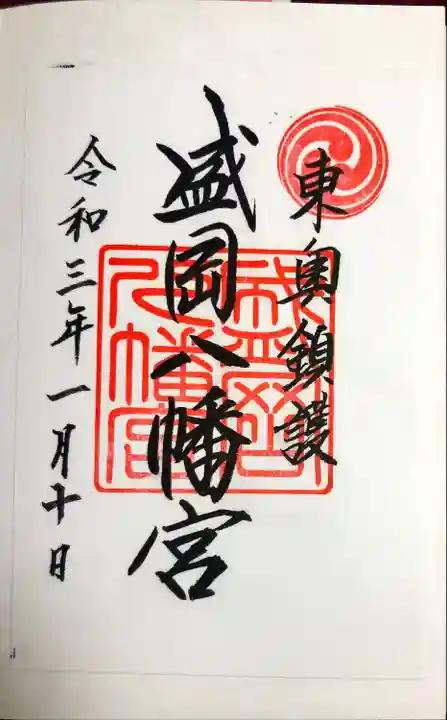 東奥鎮護
盛岡八幡宮
盛岡八幡宮
令和三年一月十日